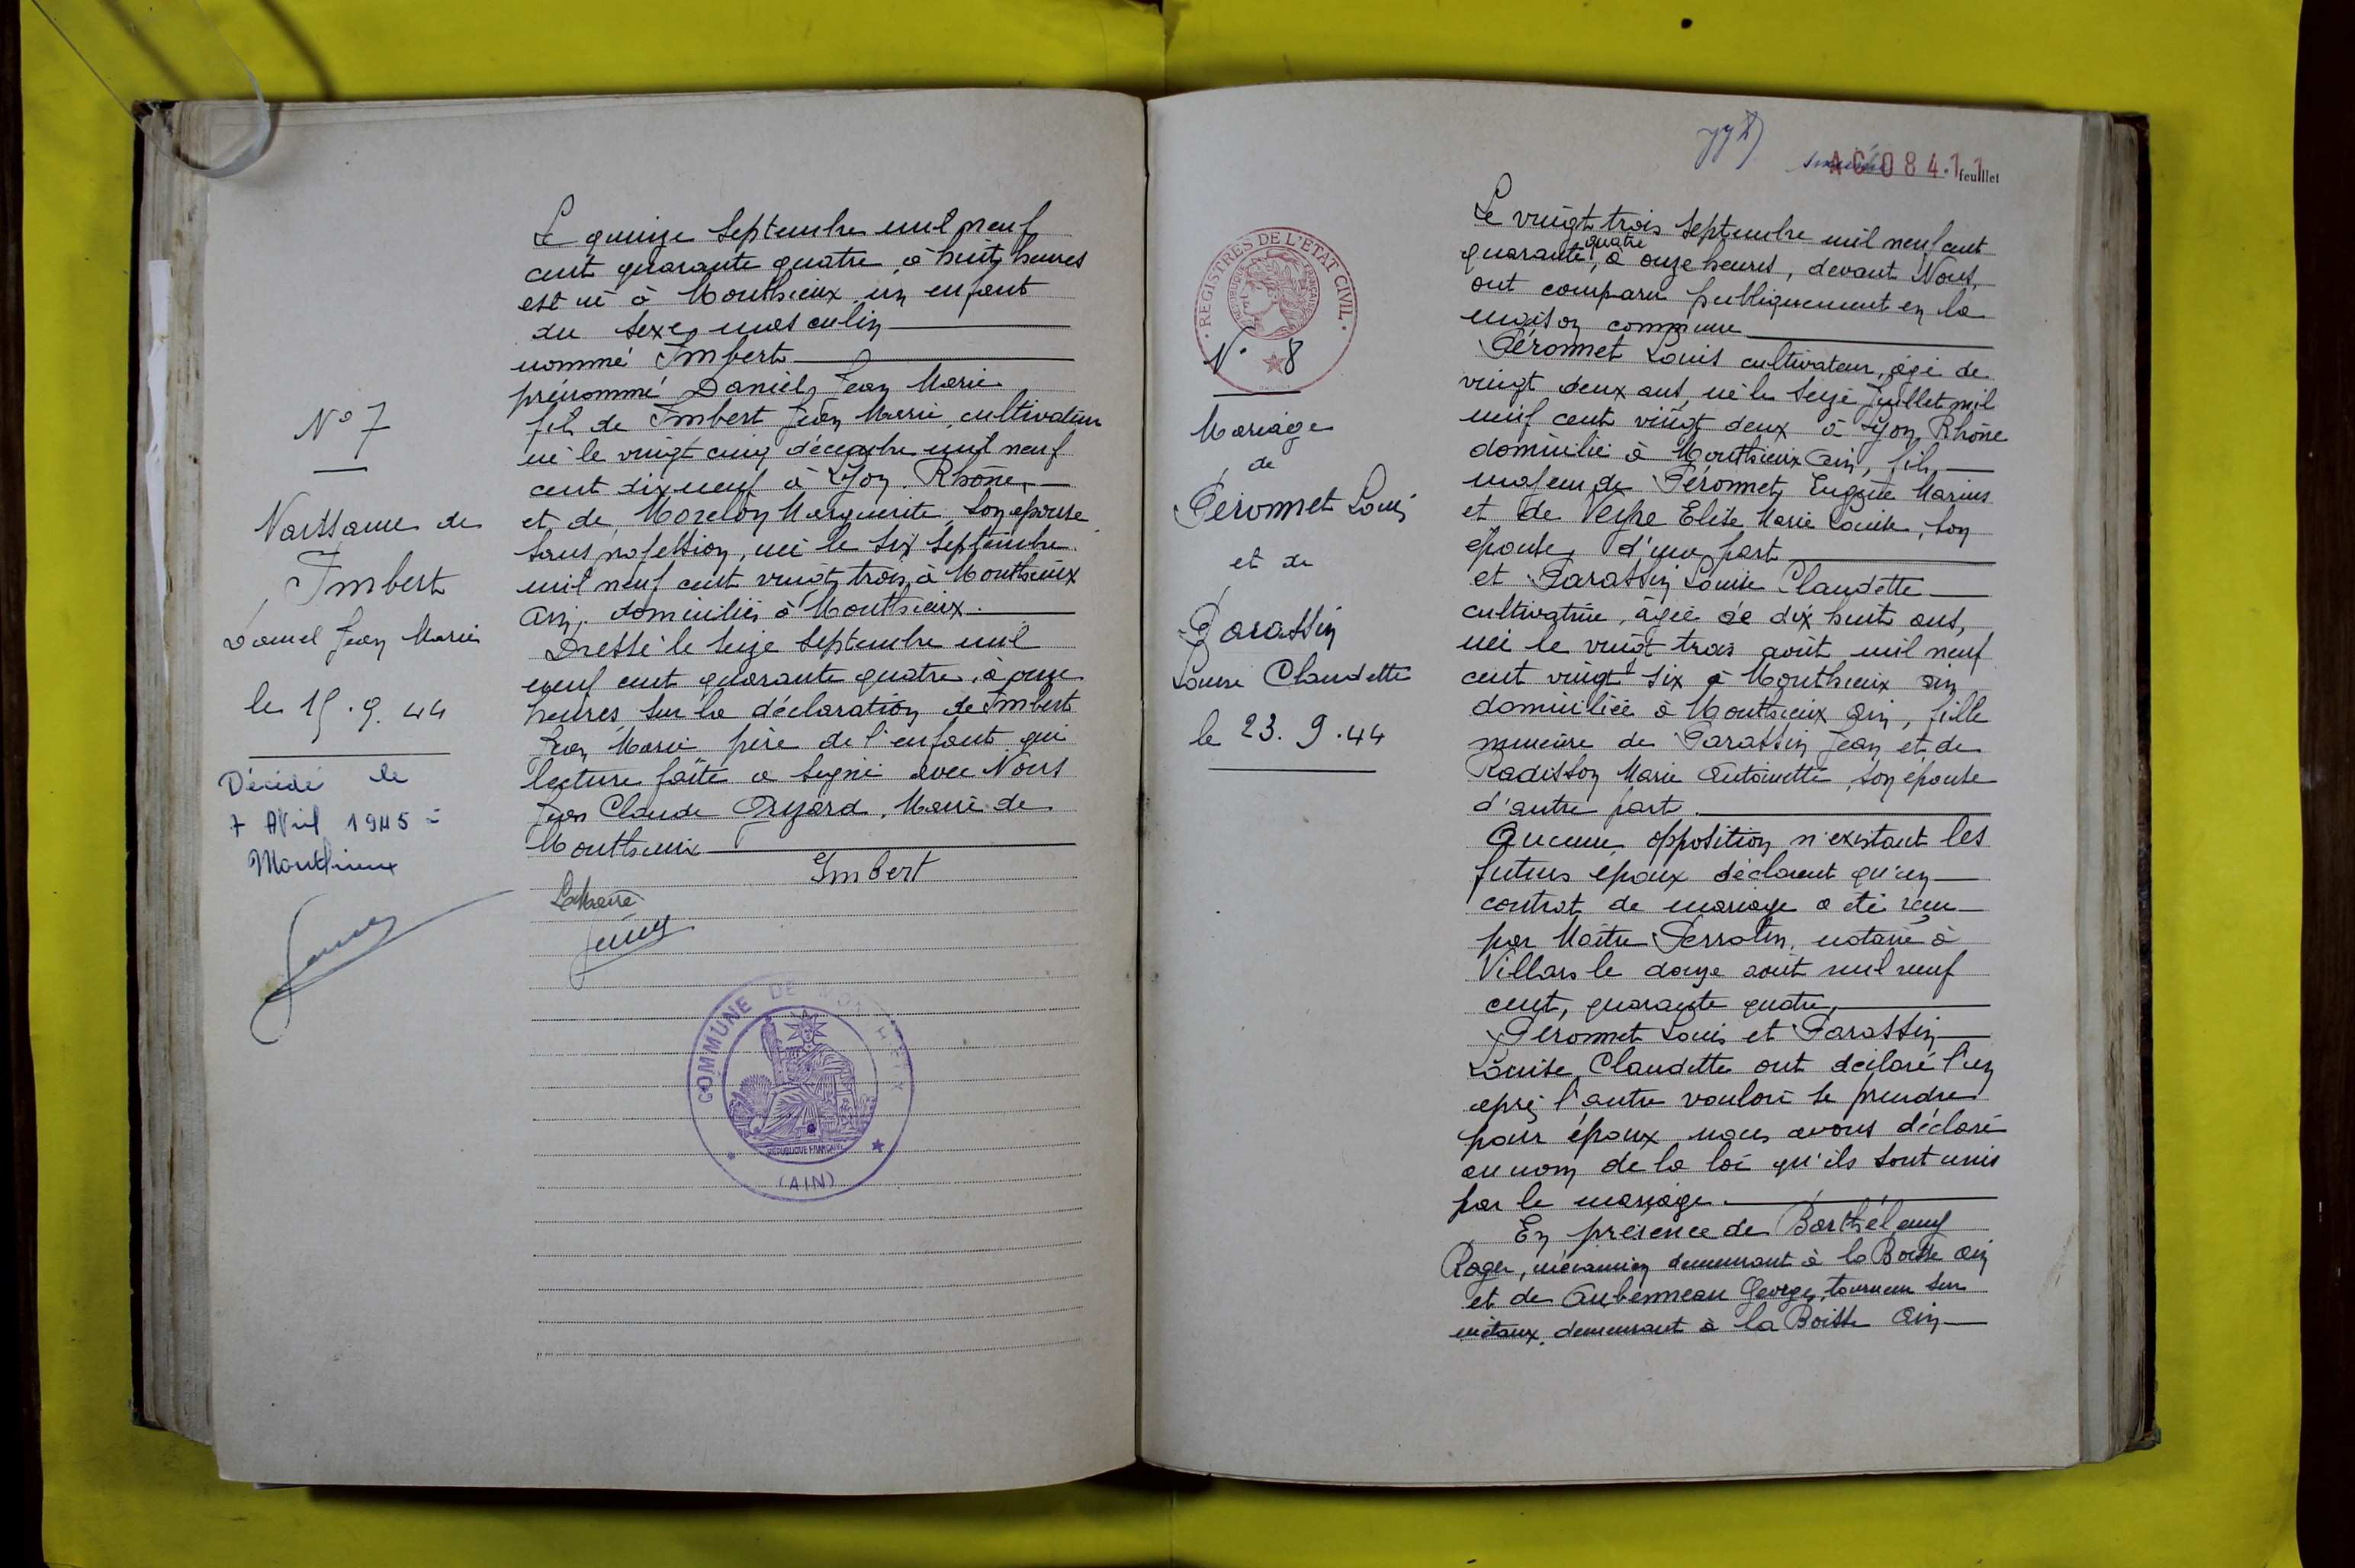 N° 7
Naissance de
Imbert
Daniel Jean Marie
le 15.9.44
Décédé le
7 Avril 1945 à
Monthieux
Le quinze Septembre mil neuf
cent quarante quatre, à huit heures
est né à Monthieux un enfant
du sexe masculin
nommé Imbert
prénommé Daniel, Jean Marie
fils de Imbert Jean Marie, cultivateur
né le vingt cinq décembre mil neuf
cent dix neuf à Lyon. Rhône,
et de Morelon Marguerite, son épouse
sans profession, née le six Septembre
mil neuf cent vingt trois, à Monthieux
Ain, domiciliés à Monthieux.
Dressé le seize Septembre mil
neuf cent quarante quatre, à onze
heures, sur la déclaration de Imbert
Jean Marie père de l'enfant qui
lecture faite a signé avec Nous
Jean Claude Maire de
Monthieux
Imbert
Le Maire
COMMUNE DE MONTHIEUX
RÉPUBLIQUE FRANÇAISE
(AIN)
AC 084.11
feuillet
REGISTRES DE L'ETAT CIVIL
REPUBLIQUE FRANÇAISE
N° 8
Mariage
de
Péronnet Louis
et de
Parassin
Louise Claudette
le 23.9.44
Le vingt trois Septembre mil neuf cent
quarante quatre, à onze heures, devant Nous,
ont comparu publiquement en la
maison commune
Péronnet Louis cultivateur, âgé de
vingt deux ans, né le seize Juillet mil
neuf cent vingt deux à Lyon, Rhône
domicilié à Monthieux Ain, fils
majeur de Péronnet, Eugène Marius
et de Veyre Elise Marie Louise, son
épouse, d'une part
et Parassin Louise Claudette
cultivatrice, âgée de dix huit ans,
née le vingt trois août mil neuf
cent vingt six à Monthieux Ain
domiciliée à Monthieux Ain, fille
mineure de Parassin Jean et de
Radisson Marie Antoinette, son épouse
d'autre part.
Aucune opposition n'existant les
futurs époux déclarent qu'un
contrat de mariage a été reçu
par Maître Perrotin, notaire à
Villars le douze août mil neuf
cent, quarante quatre,
Péronnet Louis et Parassin
Louise, Claudette ont déclaré l'un
après l'autre vouloir se prendre
pour époux nous avons déclaré
au nom de la loi qu'ils sont unis
par le mariage.
En présence de Barthélemy
Roger, mécanicien demeurant à la Boisse Ain
et de Aubenneau Georges, tourneur sur
métaux, demeurant à la Boisse Ain